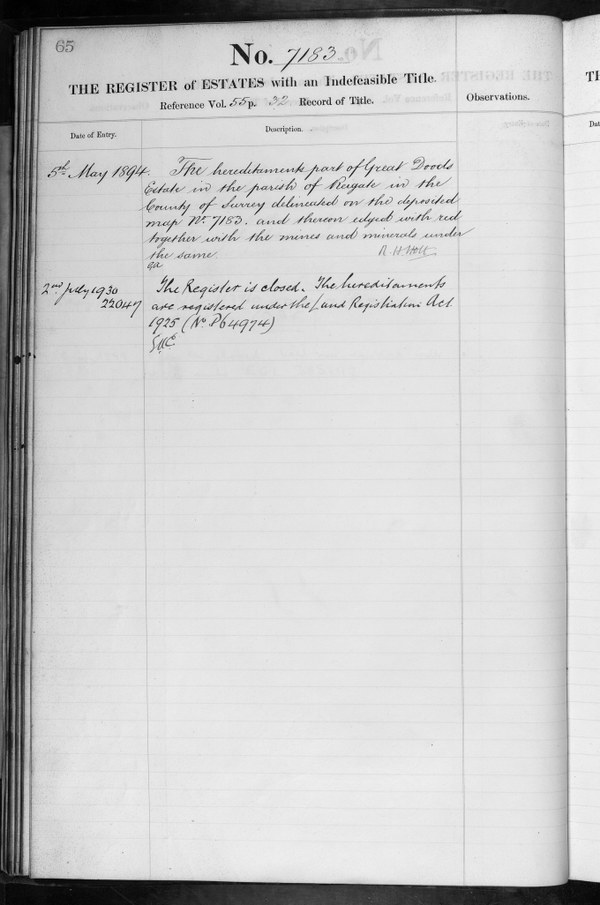 65
No. 7183
THE REGISTER of ESTATES with an Indefeasible Title.
Reference Vol. 55 p. 32 Record of Title.
Observations.
Date of Entry.
Description.
5th May 1894. The hereditaments part of Great Doods
Estate in the parish of Reigate in the
County of Surrey delineated on the deposited
map No. 7183. and thereon edged with red
together with the mines and minerals under
the same.
R. H. Holt
2nd July 1930 The Register is closed. The hereditaments
22047 are registered under the Land Registration Act
1925 (No. P64974)
TH
Dat